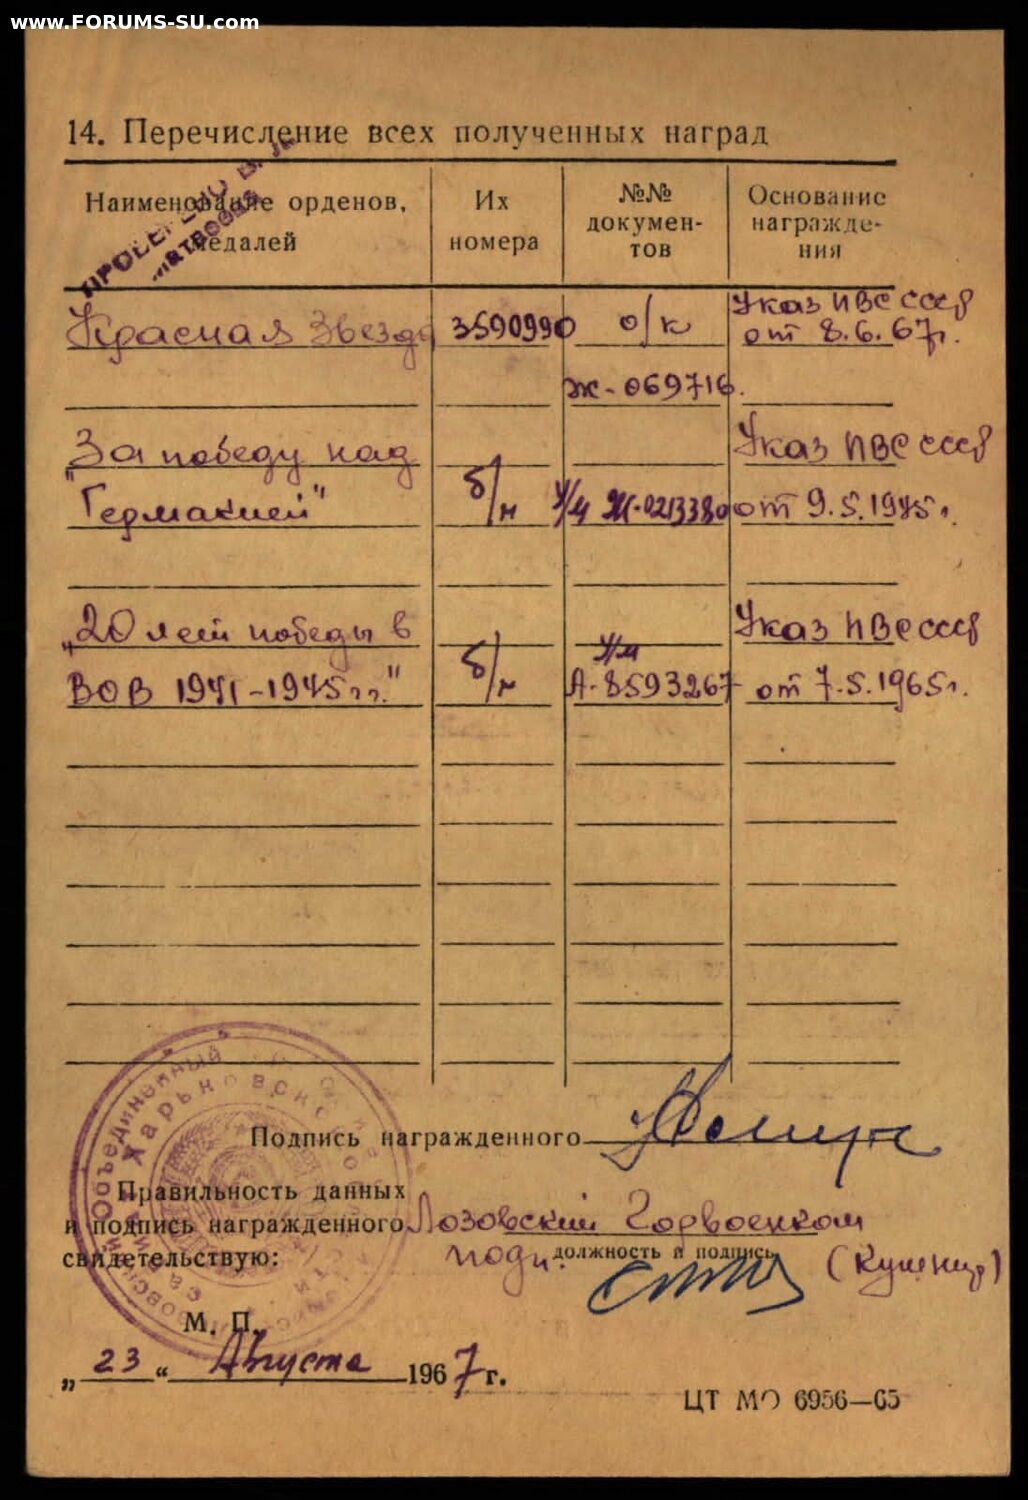 www.FORUMS-SU.com
14. Перечисление всех полученных наград
Наименование орденов, медалей
Их номера
№№ докумен-
тов
Основание
награжде-
ния
Красная Звезда 3590990 о/к Указ ПВС СССР
от 8.6.67г.
Ж-069716.
"За победу над Указ ПВС СССР
Германией" б/н У/М Ж-0213380 от 9.5.1945г.
"20 лет победы в Указ ПВС СССР
ВОВ 1941-1945 г.г." б/н У/М А-8593267 от 7.5.1965г.
Объединенный
Харьковской
Подпись награжденного
Правильность данных
и подпись награжденного Лозовский Горвоенком
свидетельствую: должность и подпись
М. П.
„23“ Августа 1967 г.
ЦТ МО 6956—65